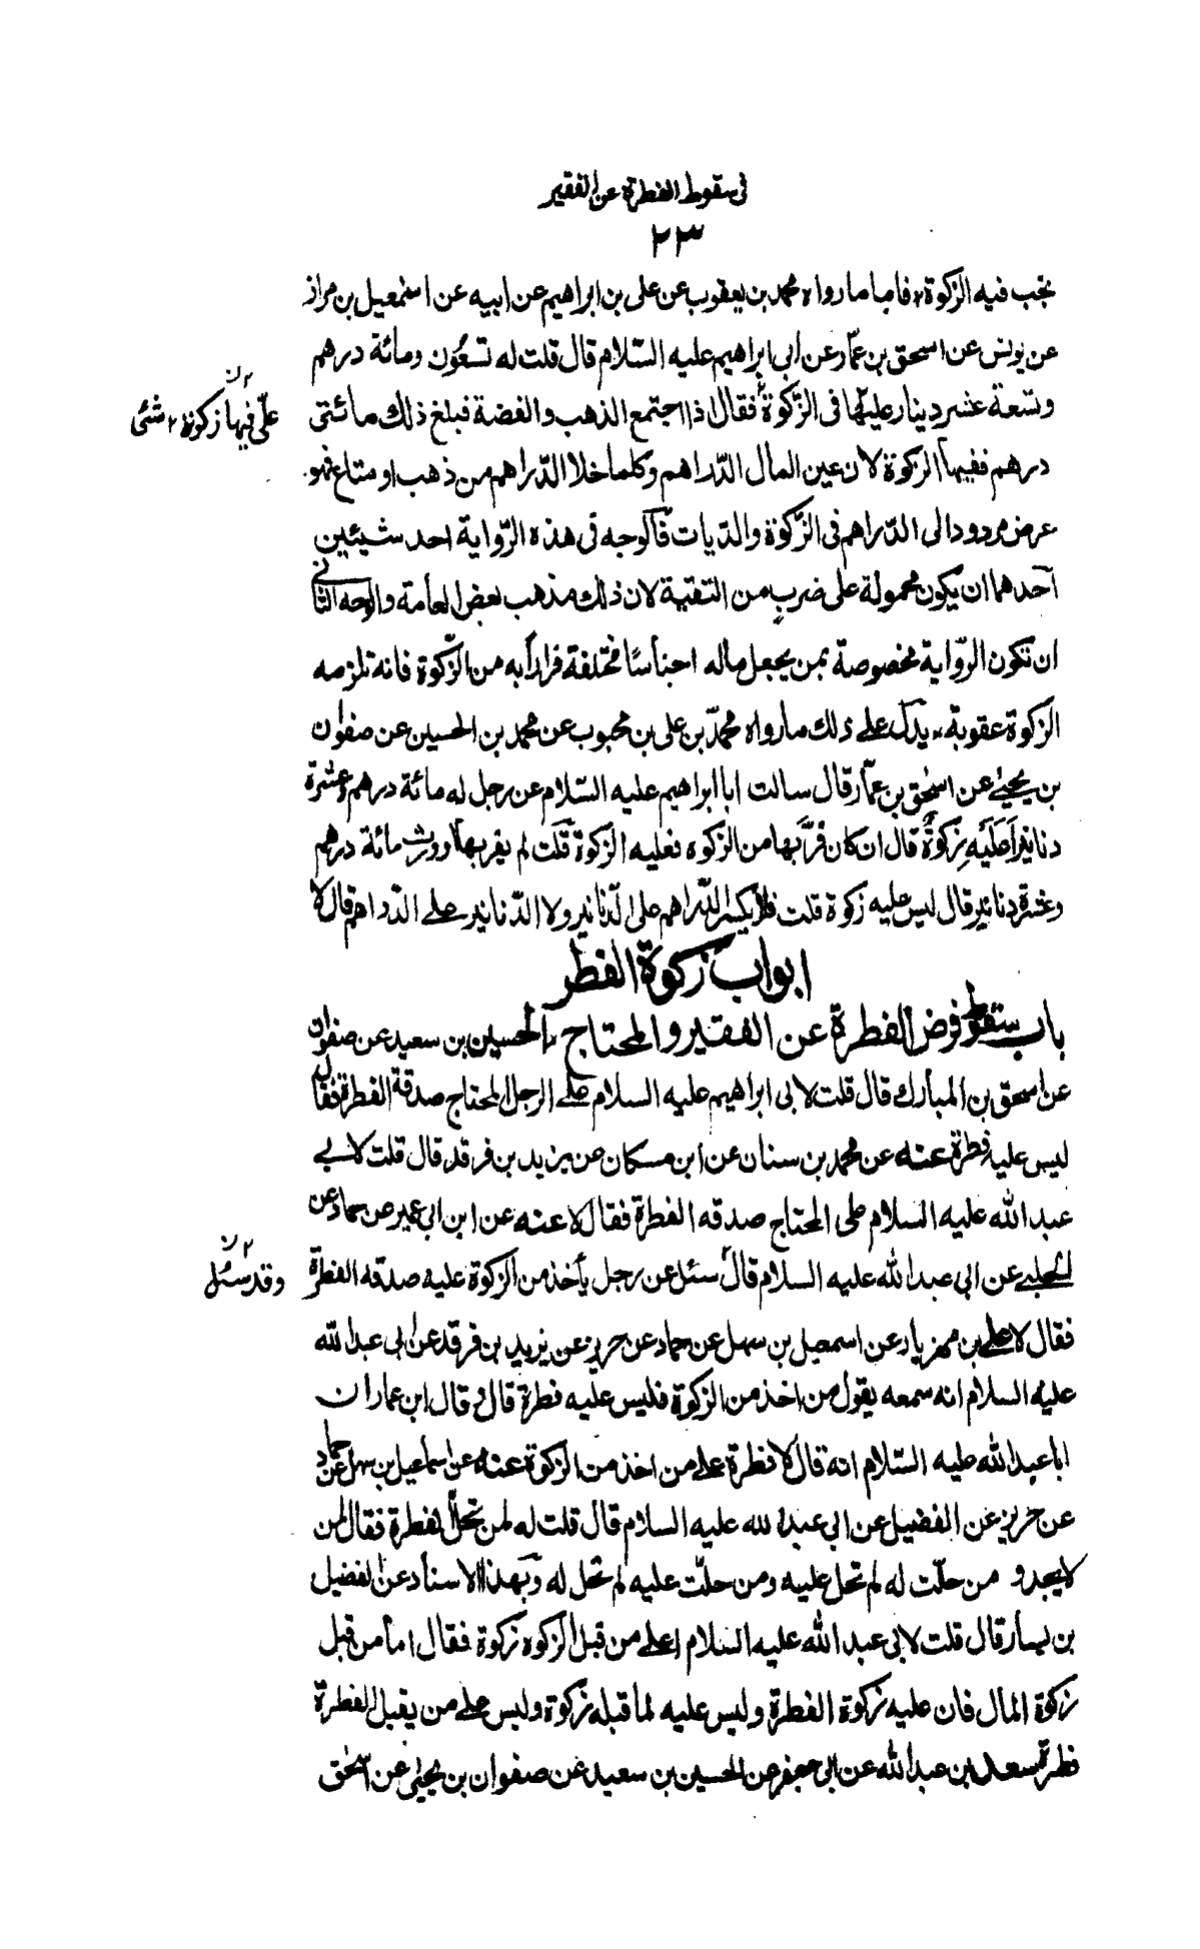 فى سقوط الفطرة عن الفقير
٢٣
تجب فيه الزكوة، فاما ما رواه محمد بن يعقوب عن على بن ابراهيم عن ابيه عن اسمعيل بن مرار
عن يونس عن اسحق بن عمّار عن ابى ابراهيم عليه السّلام قال قلت له تسعُون ومائة درهم
وتسعة عشر دينار عليها فى الزّكوة فقال اذا اجتمع الذهب والفضة فبلغ ذلك مائتى
علىّ فيها زكوة ٢ شئى
درهم ففيها الزكوة لان عين المال الدّراهم وكلما خلا الدّراهم من ذهب او متاع فهو
عرض مردود الى الدّراهم فى الزّكوة والدّيات فالوجه فى هذه الرّواية احد شيئين
احدهما ان يكون محمولة على ضرب من التقية لان ذلك مذهب بعض العامة والوجه الثانى
ان تكون الرّواية مخصوصة بمن يجعل ماله اجناسًا مختلفة فرارًا به من الزّكوة فانه تلزمه
الزكوة عقوبة، يدل على ذلك ما رواه محمّد بن على بن محبوب عن محمد بن الحسين عن صفوان
بن يحيى عن اسحق بن عمّار قال سالت ابا ابراهيم عليه السّلام عن رجل له مائة درهم وعشرة
دنانير اَعَلَيه زكوةٌ قال ان كان فرّ بها من الزكوه فعليه الزكوة قلت لم يفر بها وورث مائة درهم
وعشرة دنانير قال ليس عليه زكوة قلت فلا يكسر الدّراهم على الدّنانير ولا الدّنانير على الدّراهم قال لا
ابواب زكوة الفطر
باب سقوط فرض الفطرة عن الفقير والمحتاج، الحسين بن سعيد عن صفوان
عن اسحق بن المبارك قال قلت لابى ابراهيم عليه السلام على الرجل المحتاج صدقة الفطرة فقال
ليس عليه فطرة عنه عن محمد بن سنان عن ابن مسكان عن يزيد بن فرقد قال قلت لابى
عبد الله عليه السلام على المحتاج صدقه الفطرة فقال لا عنه عن ابن ابى عمير عن حماد عن
الحلبى عن ابى عبد الله عليه السلام قال سئل عن رجل يأخذ من الزكوة عليه صدقه الفطرة
وقد سئل
فقال لا على بن مهزيار عن اسمعيل بن سهل عن حماد عن حريز عن يزيد بن فرقد عن ابى عبد الله
عليه السلام انه سمعه يقول من اخذ من الزكوة فليس عليه فطرة قال وقال ابن عمار ان
ابا عبد الله عليه السّلام انه قال لا فطرة على من اخذ من الزكوة عنه عن اسماعيل بن سهل عن حماد
عن حريز عن الفضيل عن ابى عبد الله عليه السلام قال قلت له لمن تحل الفطرة فقال لمن
لا يجد و من حلّت له لم تحل عليه ومن حلّت عليه لم تحل له وبهذا الاسناد عن الفضيل
بن يسار قال قلت لابى عبد الله عليه السلام اعلى من قبل الزكوه زكوة فقال اما من قبل
زكوة المال فان عليه زكوة الفطرة وليس عليه لما قبله زكوة وليس على من يقبل الفطرة
فطرة سعد بن عبد الله عن ابى جعفر عن الحسين بن سعيد عن صفوان بن يحيى عن اسحق